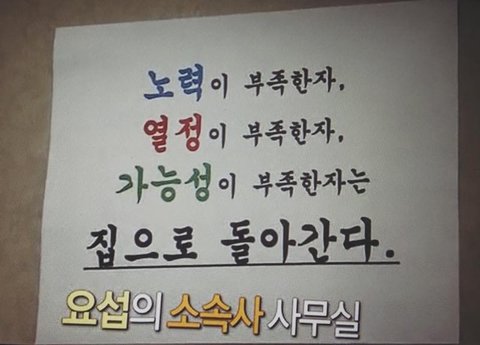 노력이 부족한자,
열정이 부족한자,
가능성이 부족한자는
집으로 돌아간다.
요섭의 소속사 사무실